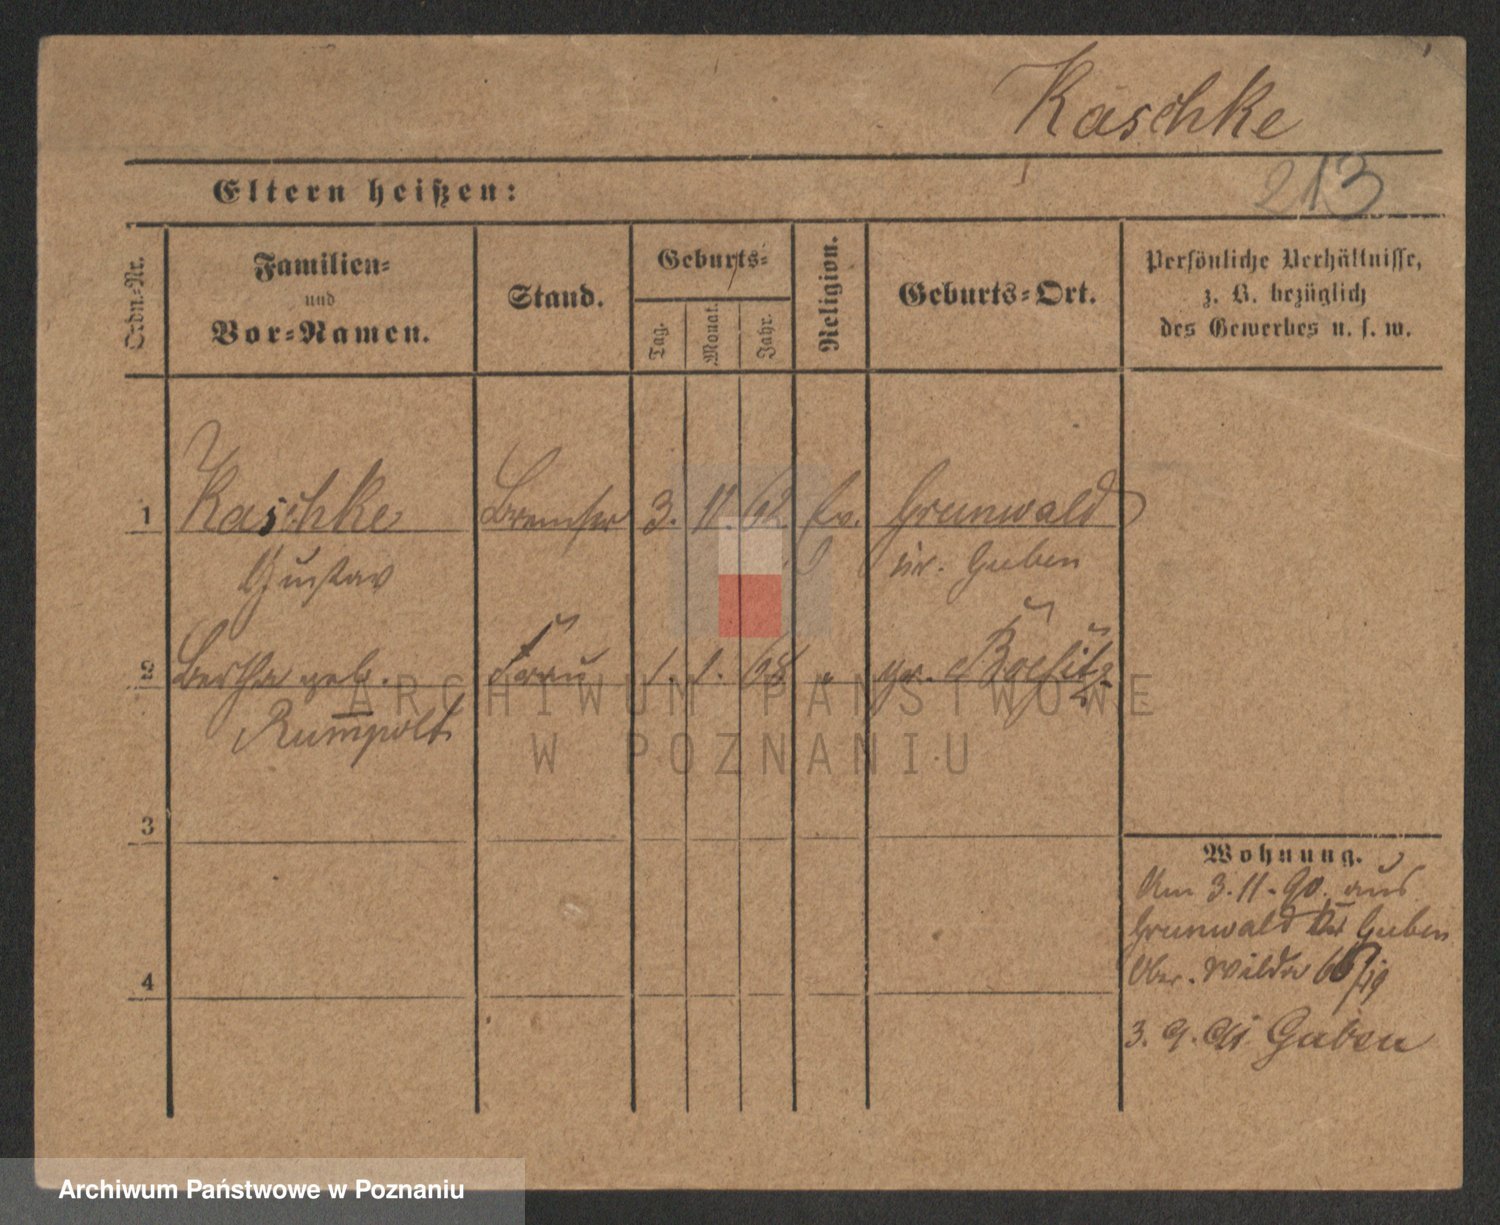 Kaschke
213
Eltern heißen:
Ordn.-Nr.
Familien-
und
Vor-Namen.
Stand.
Geburts-
Tag.
Monat.
Jahr.
Religion.
Geburts-Ort.
Persönliche Verhältnisse,
z. B. bezüglich
des Gewerbes u. s. w.
1 Kaschke Bremser 3. 11. 62 Ev. Grunwald
Gustav Kr. Guben
2 Bertha geb. Frau 1. 1. 68 " gr.
Rumpolt
3
Wohnung.
Am 3.11.90. aus
Grunwald Kr Guben
Ober. Wilda
4
3. 9. 91 Guben
ARCHIWUM PAŃSTWOWE
W POZNANIU
Archiwum Państwowe w Poznaniu